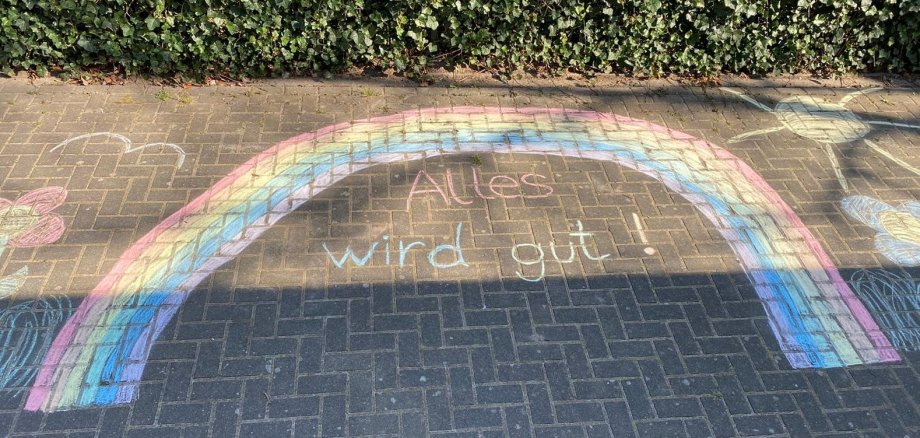 Alles
wird gut !